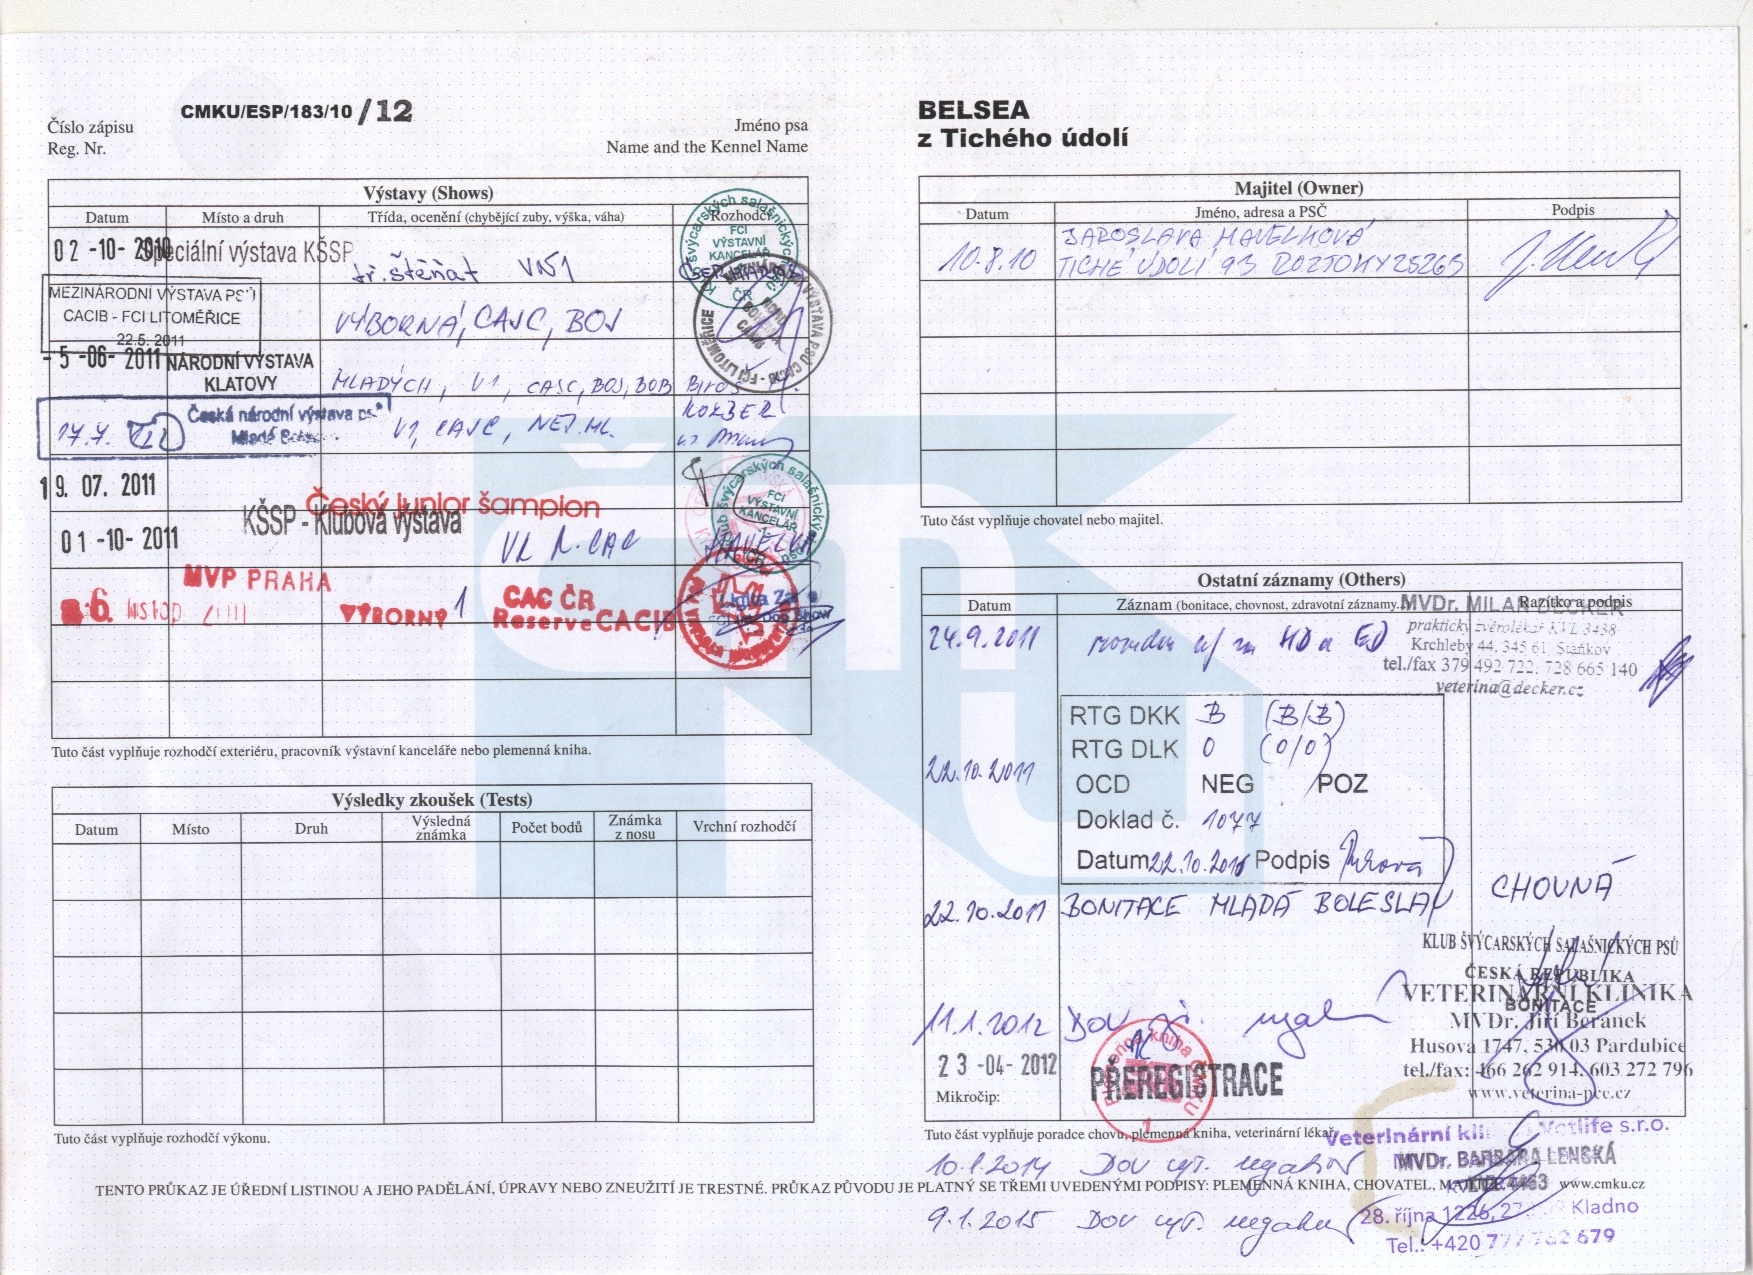 CMKU/ESP/183/10 /12
Číslo zápisu
Reg. Nr.
Jméno psa
Name and the Kennel Name
BELSEA
z Tichého údolí
Výstavy (Shows)
Datum Místo a druh Třída, ocenění (chybějící zuby, výška, váha) Rozhodčí
02 -10- 2010 Speciální výstava KŠSP tř. štěňat VN1
MEZINÁRODNÍ VÝSTAVA PSŮ
CACIB - FCI LITOMĚŘICE
22.5. 2011
VÝBORNÁ, CAJC, BOJ
- 5 -06- 2011 NÁRODNÍ VÝSTAVA
KLATOVY
MLADÝCH, V1, CAJC, BOJ, BOB
17.7. Česká národní výstava psů
Mladá
V1, CAJC, NEJ. ML.
KORBER
19. 07. 2011 Český junior šampion
01 -10- 2011 KŠSP - Klubová výstava
V1 R. CAC HAVELKA
6. listop. MVP PRAHA
VÝBORNÝ 1 CAC ČR
Reserve CACIB
švýcarských salašnických
FCI
VÝSTAVNÍ
KANCELÁŘ
ČR
FCI LITOMĚŘICE
klub švýcarských salašnických psů
FCI
VÝSTAVNÍ
KANCELÁŘ
Tuto část vyplňuje rozhodčí exteriéru, pracovník výstavní kanceláře nebo plemenná kniha.
Výsledky zkoušek (Tests)
Datum Místo Druh Výsledná známka Počet bodů Známka z nosu Vrchní rozhodčí
Tuto část vyplňuje rozhodčí výkonu.
Majitel (Owner)
Datum Jméno, adresa a PSČ Podpis
10.8.10 JAROSLAVA HAVELKOVÁ
TICHÉ ÚDOLÍ 93 ROZTOKY 25263
Tuto část vyplňuje chovatel nebo majitel.
Ostatní záznamy (Others)
Datum Záznam (bonitace, chovnost, zdravotní záznamy. Razítko a podpis
MVDr. MILAN DECKER
praktický zvěrolékař KVL 3438
Krchleby 44, 345 61 Staňkov
tel./fax 379 492 722; 728 665 140
veterina@decker.cz
24.9.2011 HD a ED
RTG DKK B (B/B)
RTG DLK 0 (0/0)
22.10.2011
OCD NEG POZ
Doklad č. 1077
Datum 22.10.2011 Podpis
22.10.2011 BONITACE MLADÁ BOLESLAV CHOVNÁ
KLUB ŠVÝCARSKÝCH SALAŠNICKÝCH PSŮ
ČESKÁ REPUBLIKA
BONITACE
VETERINÁRNÍ KLINIKA
MVDr. Jiří Beránek
Husova 1747, 530 03 Pardubice
tel./fax: 466 262 914, 603 272 796
www.veterina-pce.cz
11.1.2012 DOV
23 -04- 2012 PŘEREGISTRACE
Plemenná kniha ČMKU
1
Mikročip:
Tuto část vyplňuje poradce chovu, plemenná kniha, veterinární lékař.
Veterinární Vetlife s.r.o.
MVDr. BARBARA LENSKÁ
4463
28. října 1226, Kladno
Tel.: +420 777 762 679
10.1.2014 Dov vyš. negativ
TENTO PRŮKAZ JE ÚŘEDNÍ LISTINOU A JEHO PADĚLÁNÍ, ÚPRAVY NEBO ZNEUŽITÍ JE TRESTNÉ. PRŮKAZ PŮVODU JE PLATNÝ SE TŘEMI UVEDENÝMI PODPISY: PLEMENNÁ KNIHA, CHOVATEL, MAJITEL. www.cmku.cz
9.1.2015 Dov vyš.